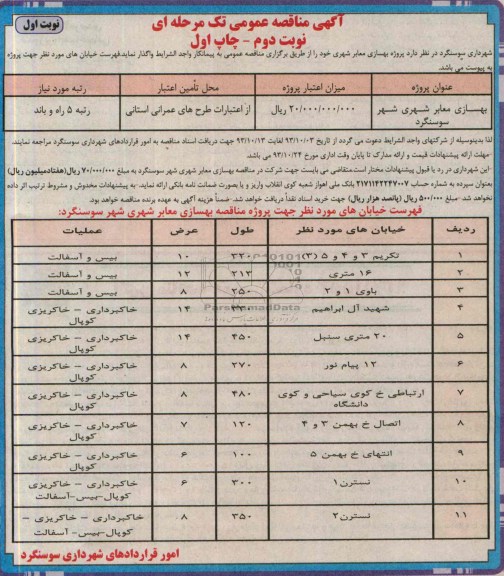 آگهی مناقصه عمومی تک مرحله ای
نوبت دوم - چاپ اول
نوبت اول
شهرداری سوسنگرد در نظر دارد پروژه بهسازی معابر شهری خود را از طریق برگزاری مناقصه عمومی به پیمانکار واجد الشرایط واگذار نماید.فهرست خیابان های مورد نظر جهت پروژه
به پیوست می باشد.
عنوان پروژه میزان اعتبار پروژه محل تأمین اعتبار رتبه مورد نیاز
بهسازی معابر شهری شهر سوسنگرد ۲۰/۰۰۰/۰۰۰/۰۰۰ ریال از اعتبارات طرح های عمرانی استانی رتبه ۵ راه و باند
لذا بدینوسیله از شرکتهای واجد الشرایط دعوت می گردد از تاریخ ۹۳/۱۰/۰۳ لغایت ۹۳/۱۰/۱۳ جهت دریافت اسناد مناقصه به امور قراردادهای شهرداری سوسنگرد مراجعه نمایند.
-مهلت ارائه پیشنهادات قیمت و ارائه مدارک تا پایان وقت اداری مورخ ۹۳/۱۰/۲۴ می باشد.
-این شهرداری در رد یا قبول پیشنهادات مختار است.متقاضی می بایست جهت شرکت در مناقصه بهسازی معابر شهری شهر سوسنگرد به مبلغ ۷۰/۰۰۰/۰۰۰ ریال(هفتادمیلیون ریال)
بعنوان سپرده به شماره حساب بانک ملی اهواز شعبه کوی انقلاب واریز و یا بصورت ضمانت نامه بانکی ارائه نماید. -به پیشنهادات مخدوش و مشروط ترتیب اثر داده
نخواهد شد. -مبلغ ۵۰۰/۰۰۰ ریال (پانصد هزار ریال) جهت خرید اسناد نقداً دریافت خواهد شد. ضمناً هزینه آگهی به عهده برنده مناقصه خواهد بود.
فهرست خیابان های مورد نظر جهت پروژه مناقصه بهسازی معابر شهری شهر سوسنگرد:
ردیف خیابان های مورد نظر طول عرض عملیات
۱ تکریم ۳ و ۴ و ۵ (۳) ۳۲۰ ۱۰ بیس و آسفالت
۲ ۱۶ متری ۲۱۲ ۱۲ بیس و آسفالت
۳ باوی ۱ و ۲ ۲۵۰ ۸ بیس و آسفالت
۴ شهید آل ابراهیم ۱۴ خاکبرداری – خاکریزی کوپال
۵ ۲۰ متری سنبل ۴۵۰ ۱۴ خاکبرداری – خاکریزی کوپال
۶ ۱۲ پیام نور ۲۷۰ ۸ خاکبرداری – خاکریزی کوپال
۷ ارتباطی خ کوی سیاحی و کوی دانشگاه ۴۸۰ ۸ خاکبرداری – خاکریزی کوپال
۸ اتصال خ بهمن ۳ و ۴ ۱۲۰ ۷ خاکبرداری – خاکریزی کوپال
۹ انتهای خ بهمن ۵ ۱۰۰ ۶ خاکبرداری – خاکریزی کوپال
۱۰ نسترن۱ ۳۰۰ ۶ خاکبرداری – خاکریزی کوپال-بیس-آسفالت
۱۱ نسترن۲ ۳۵۰ ۸ خاکبرداری – خاکریزی – کوپال-بیس- آسفالت
ParsNamadData
امور قراردادهای شهرداری سوسنگرد